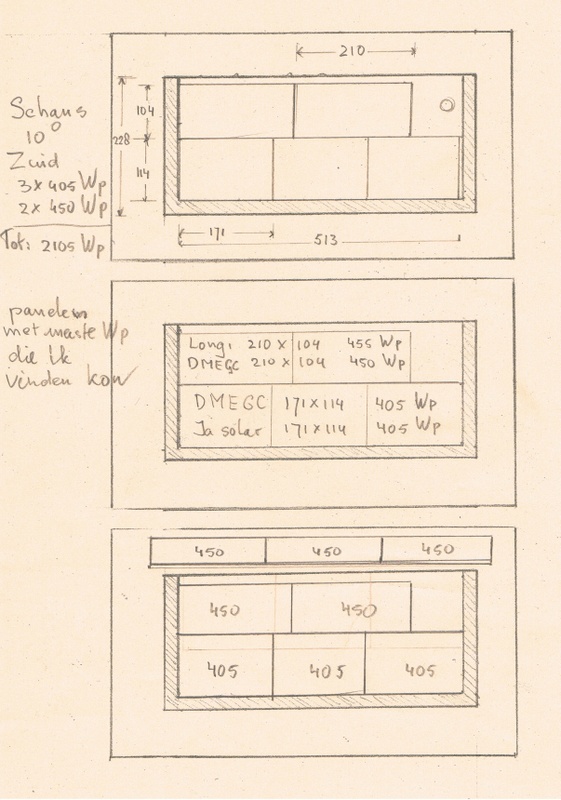 210
Schans
10°
Zuid
3x 405 Wp
2x 450 Wp
Tot: 2105 Wp
104
228
114
171
513
panelen
met meeste Wp
die ik
vinden kon
Longi 210 x 104 455 Wp
DMEGC 210 x 104 450 Wp
DMEGC 171 x 114 405 Wp
Ja solar 171 x 114 405 Wp
450 450 450
450 450
405 405 405